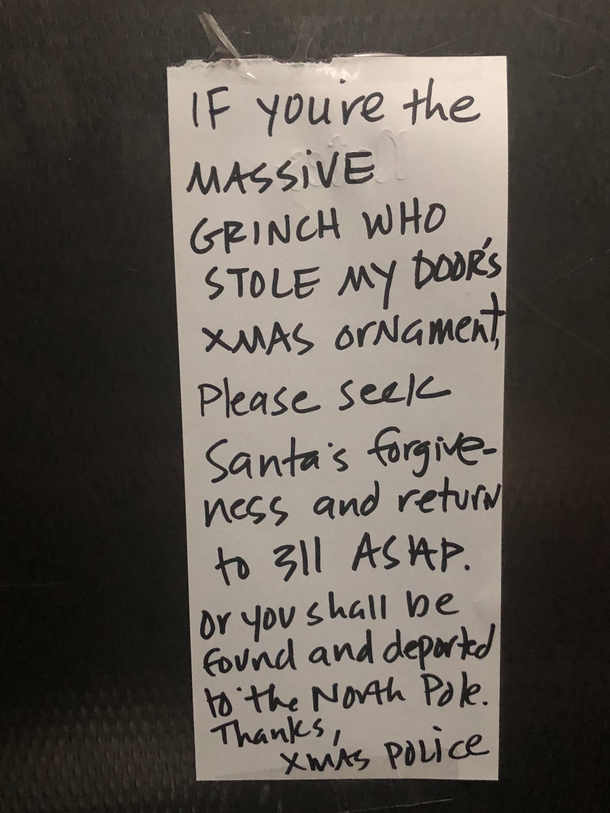 IF you're the
MASSiVE
GRINCH WHO
STOLE MY DOOR's
XMAS orNament,
Please seek
Santa's forgive-
ness and return
to 311 ASAP.
or you shall be
found and deported
to the North Pole.
Thanks,
XMAS POLICE